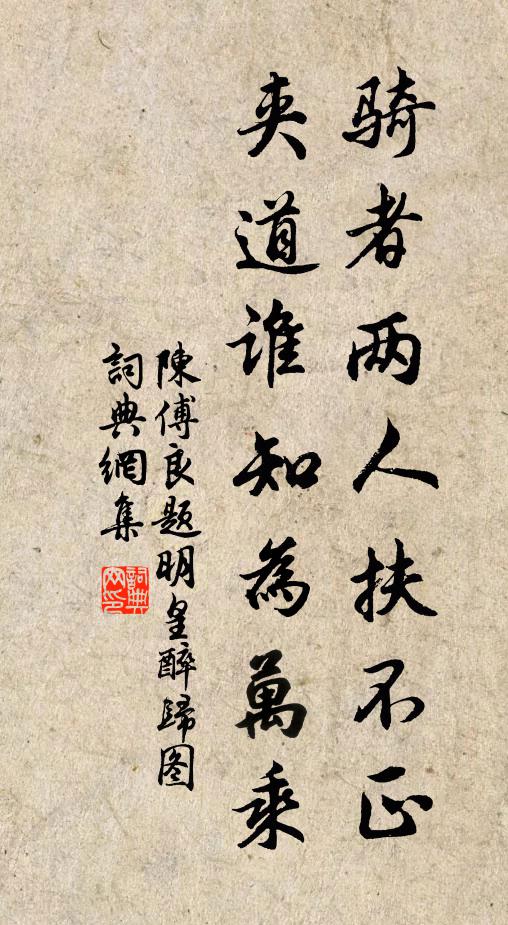 骑者两人扶不正
夹道谁知為萬乘
陳傅良题明皇醉歸图
詞典網集
詞典網印